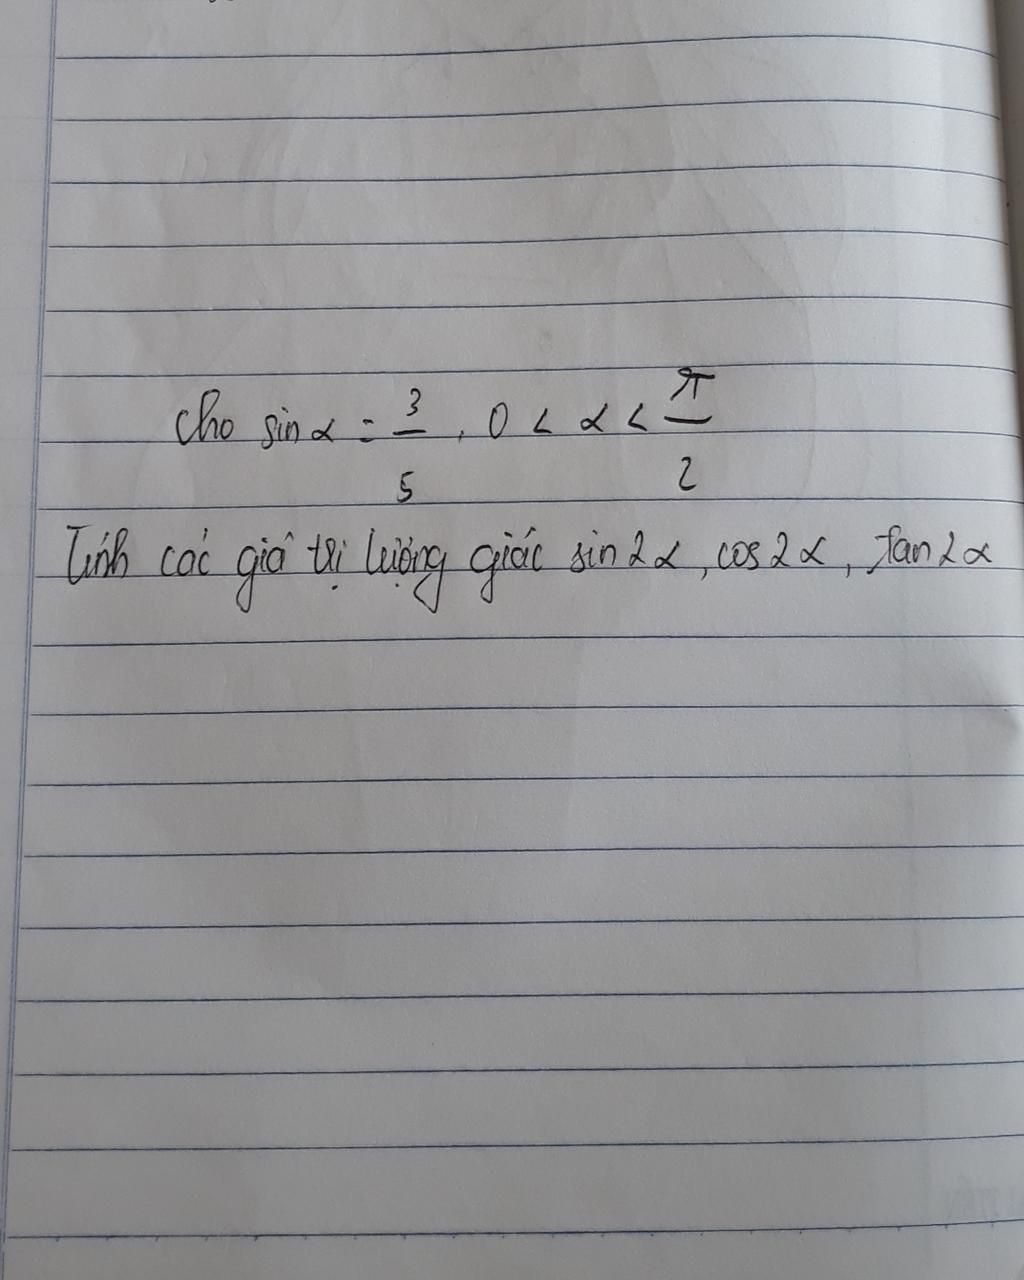 Cho sin α = 3/5, 0 < α < π/2
Tính các giá trị lượng giác sin2α, cos2α, tan2α